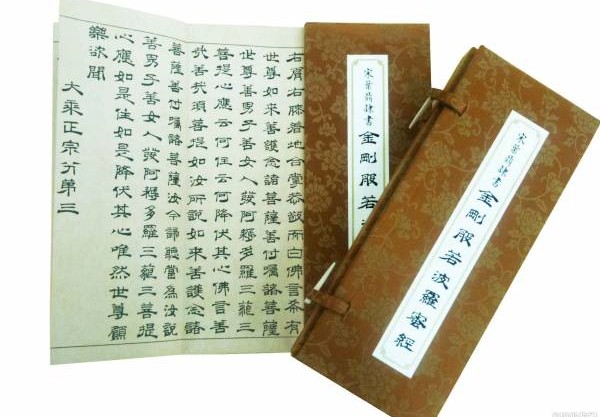 右肩右膝着地合掌恭敬而白佛言希有
世尊如来善護念諸菩薩善付囑諸菩薩
世尊善男子善女人發阿耨多羅三藐三
菩提心應云何住云何降伏其心佛言善
哉善哉須菩提如汝所說如来善護念諸
菩薩善付囑諸菩薩汝今諦聽當為汝說
善男子善女人發阿耨多羅三藐三菩提
心應如是住如是降伏其心唯然世尊願
樂欲聞
大乘正宗分第三
宋葉隸書
金剛般若
宋葉隸書
金剛般若波羅蜜經